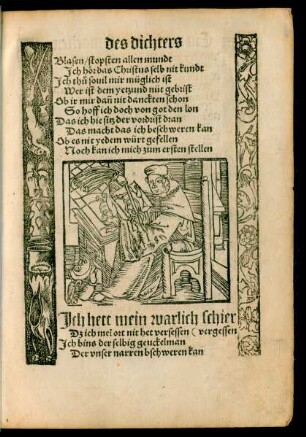 des dichters
Blasen/stopfften allen mundt
Jch hör das Christus selb nit kundt
Jch thů souil mir müglich ist
Wer ist dem yetzund nüt gebrist
Ob ir mir dañ nit danckten schon
So hoff ich doch von got den lon
Das ich hie sitz der vordrist dran
Das macht das ich beschweren kan
Ob es nit yedem würt gefellen
Noch kan ich mich zum ersten stellen
Jch hett mein warlich schier
Dz ich mei͂ ort nit het versessen (vergessen
Jch bins der selbig geuckelman
Der vnser narren bschweren kan